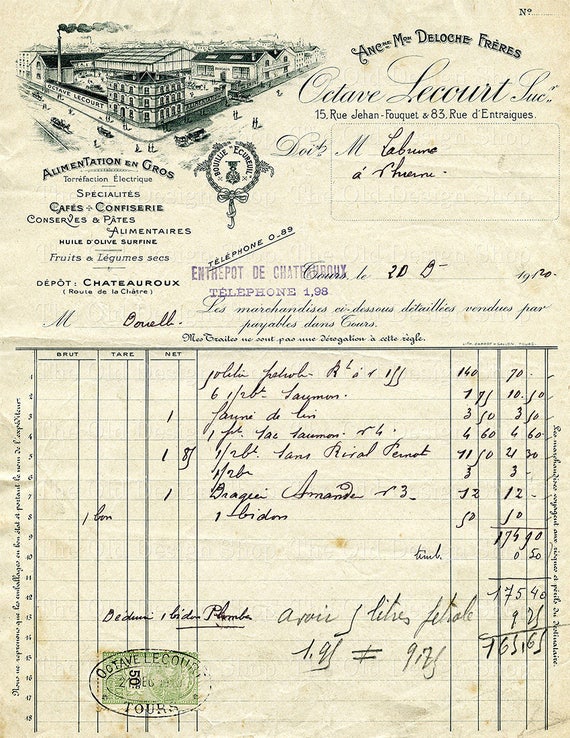 No
Ancne Mon Deloche Frères
Octave Lecourt Sucr
15, Rue Jehan-Fouquet & 83, Rue d'Entraigues.
OCTAVE LECOURT
BOUILLIE "ECUREUIL"
Alimentation en Gros
Torréfaction Électrique
Spécialités
Cafés & Confiserie
Conserves & Pâtes
Alimentaires
Huile d'Olive Surfine
Fruits & Légumes secs
Dépôt: Chateauroux
(Route de la Châtre)
Téléphone 0-89
Doit M
à
ENTREPOT DE CHATEAUROUX
TÉLÉPHONE 1,98
Tours, le 20 D 1920
M
Les marchandises ci-dessous détaillées vendues par
payables dans Tours.
Mes Traites ne sont pas une dérogation à cette règle.
BRUT TARE NET
1 140 70
2 6 1/2 bts Saumon. 1 75 10.50
3 1 Farine de lin 3 50 3 50
4 1 Sac Saumon. n 4 4 60 4 60
5 1 85 1/2 bt Sans Rival Pernot 11 50 21 30
6 3 3
7 1 Amandes n 3 12 12
8 1 bon 1 bidon 50 50
9 174 90
10 timb 0 50
11
12 175 40
13 Déduire 1 bidon Plombe avoir 5 litres pétrole 9 75
14 165,65
15 1.95 # 9,75
16
17
18
OCTAVE LECOURT
50
TOURS
Nous ne reprenons que les emballages en bon état et portant le nom de l'expéditeur.
Les marchandises voyagent aux risques et périls du destinataire.